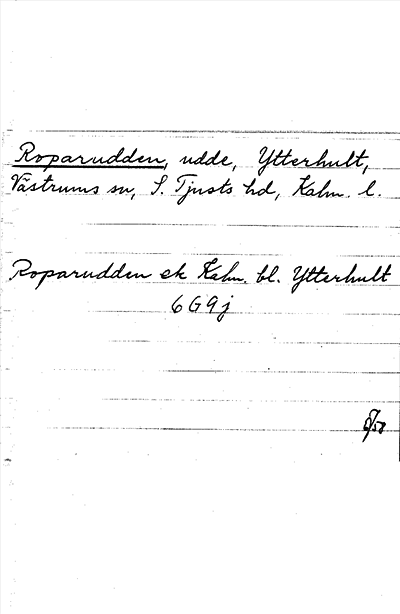 Roparudden, udde, Ytterhult,
Västrums sn, S. Tjusts hd, Kalm. l.
Roparudden ek Kalm. bl. Ytterhult
6G9j